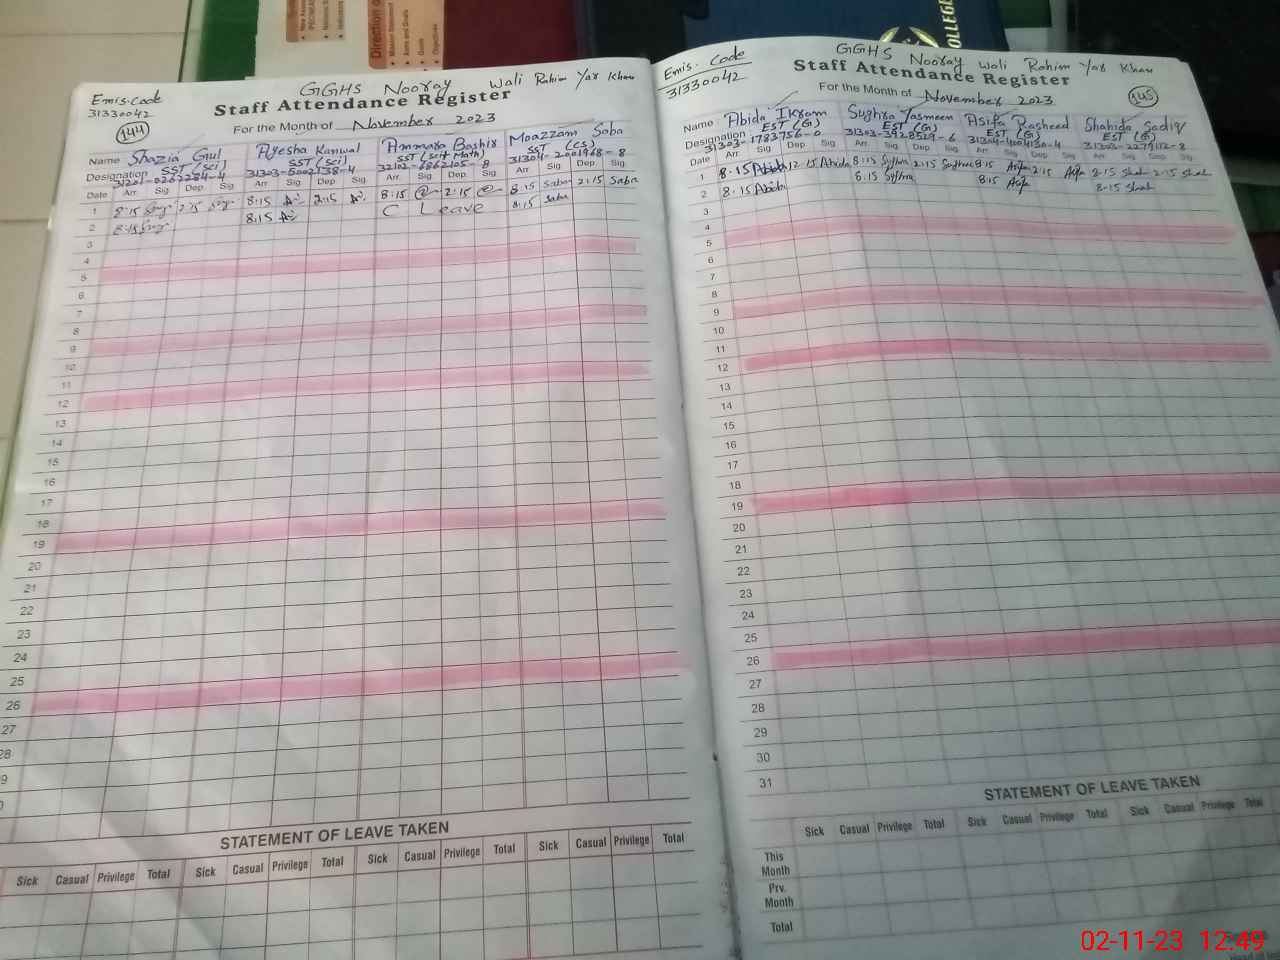 Direction
Aims and Goals
Goals
Objectives
COLLEGE
Emis.Code
31330042
144
GGHS Nooray Wali Rahim Yar Khan
Staff Attendance Register
For the Month of November 2023
Name Shazia Gul Ayesha Kanwal Ammara Bashir Moazzam Saba
Designation SST (Sci) SST (Sci) SST (Sci+Math) SST (CS)
31303-5002138-4 31304-2001968-8
Date Arr Sig Dep Sig Arr Sig Dep Sig Arr Sig Dep Sig Arr Sig Dep Sig
1 8.15 2.15 8.15 2.15 8.15 2.15 8.15 Saba 2.15 Saba
2 8.15 8.15 C Leave 8.15 Saba
3
4
5
6
7
8
9
10
11
12
13
14
15
16
17
18
19
20
21
22
23
24
25
26
27
28
9
STATEMENT OF LEAVE TAKEN
Sick Casual Privilege Total Sick Casual Privilege Total Sick Casual Privilege Total Sick Casual Privilege Total
Emis. Code
31330042
145
GGHS Nooray Wali Rahim Yar Khan
Staff Attendance Register
For the Month of November 2023
Name Abida Ikram Sughra Yasmeen Asifa Rasheed Shahida Sadiq
Designation EST (G) EST (G) EST (G) EST (G)
31303-1783756-0 31303-3928529-6 31303-2279112-8
Date Arr Sig Dep Sig Arr Sig Dep Sig Arr Sig Dep Sig Arr Sig Dep Sig
1 8.15 Abida 12.15 Abida 8.15 Sughra 2.15 Sughra 8.15 Asifa 2.15 Asifa 8.15 Shah 2.15 Shah
2 8.15 Abida 8.15 Sughra 8.15 Asifa 8.15 Shah
3
4
5
6
7
8
9
10
11
12
13
14
15
16
17
18
19
20
21
22
23
24
25
26
27
28
29
30
31
STATEMENT OF LEAVE TAKEN
Sick Casual Privilege Total Sick Casual Privilege Total Sick Casual Privilege Total
This Month
Prv. Month
Total
02-11-23 12:49